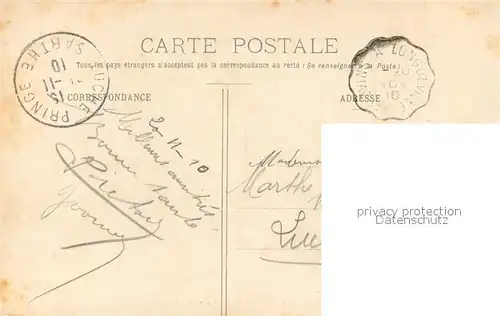 CARTE POSTALE
Tous les pays étrangers n'acceptent pas la correspondance au recto (Se renseigner à la Poste)
CORRESPONDANCE
ADRESSE
PRINGE
SARTHE
11
10
A LONGUEVILLE
20-11-10
Bonne santé
Yvonne
Mademoi
Marthe
Luc
privacy protection
Datenschutz